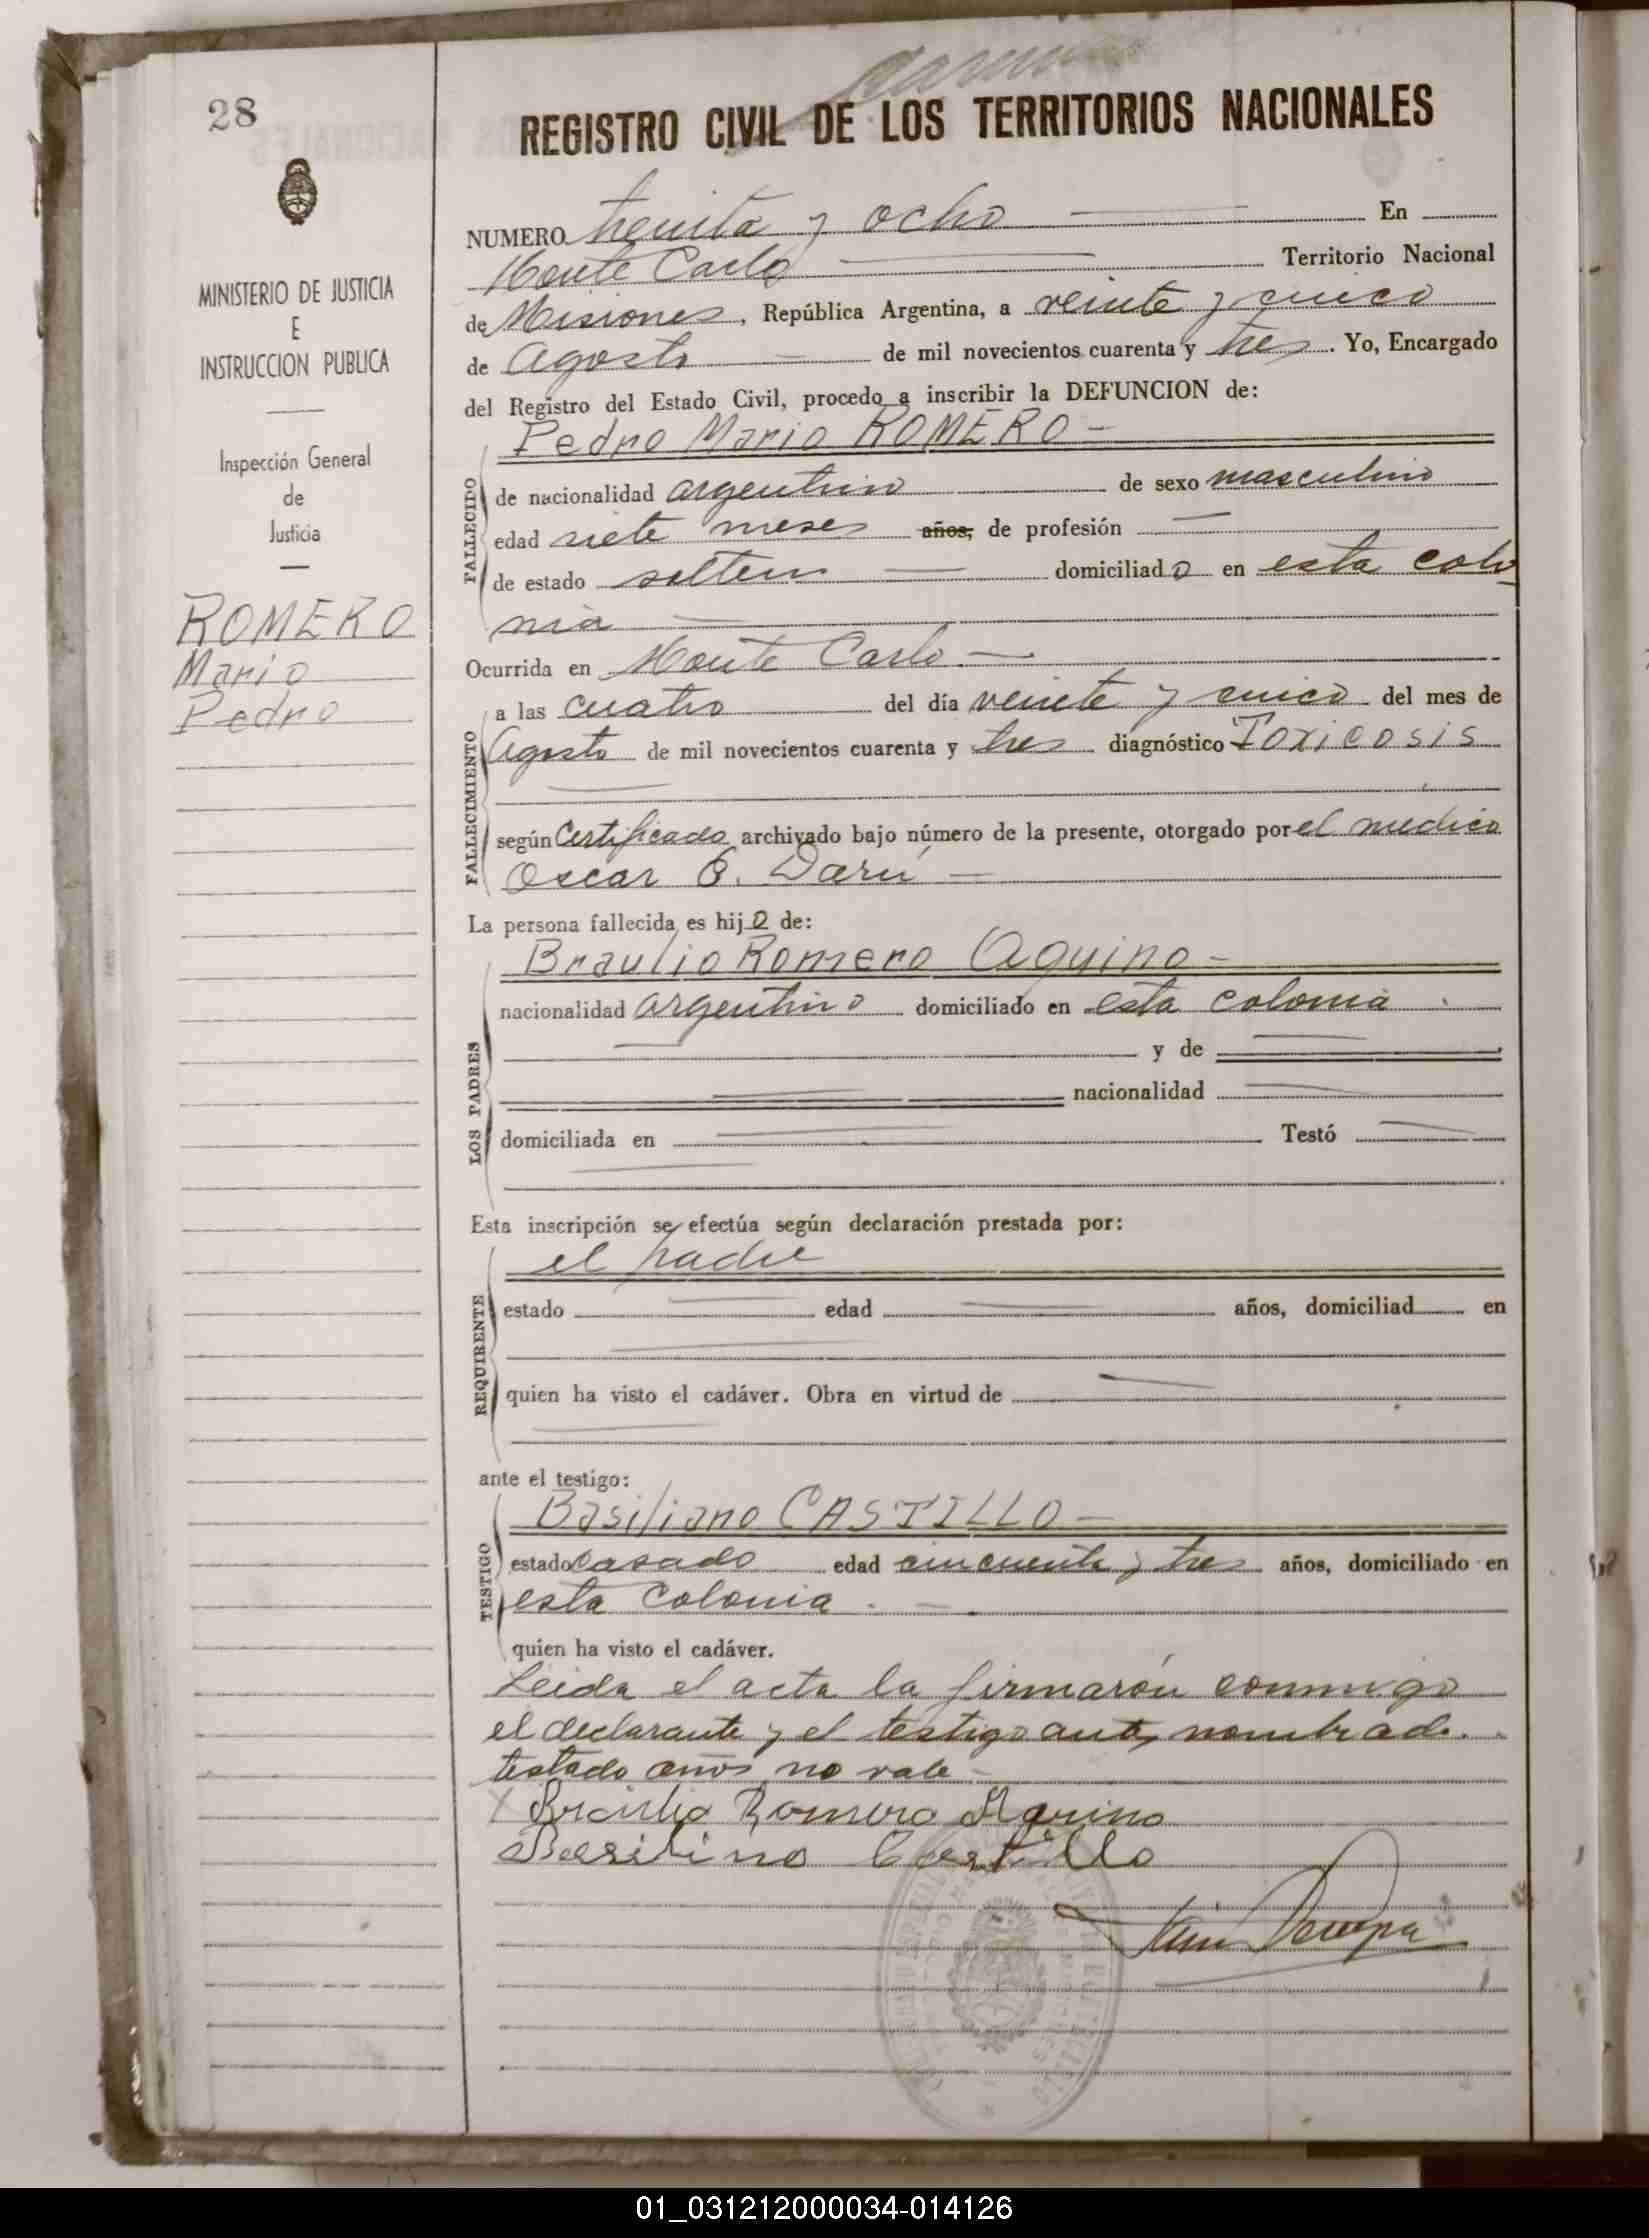 28
REGISTRO CIVIL DE LOS TERRITORIOS NACIONALES
MINISTERIO DE JUSTICIA
E
INSTRUCCION PUBLICA
Inspección General
de
Justicia
ROMERO
Mario
Pedro
NUMERO treinta y ocho En
Monte Carlo Territorio Nacional
de Misiones, República Argentina, a veinte y cinco
de Agosto de mil novecientos cuarenta y tres. Yo, Encargado
del Registro del Estado Civil, procedo a inscribir la DEFUNCION de:
Pedro Mario ROMERO -
FALLECIDO
de nacionalidad argentino de sexo masculino
edad siete meses años, de profesión —
de estado soltero — domiciliado en esta colo
nia —
Ocurrida en Monte Carlo. —
FALLECIMIENTO
a las cuatro del día veinte y cinco del mes de
Agosto de mil novecientos cuarenta y tres diagnóstico Toxicosis
según Certificado archivado bajo número de la presente, otorgado por el medico
Oscar E. Darú —
La persona fallecida es hijo de:
LOS PADRES
Braulio Romero Aquino -
nacionalidad argentino domiciliado en esta colonia .
y de —
nacionalidad —
domiciliada en — Testó —
Esta inscripción se efectúa según declaración prestada por:
REQUIRENTE
el padre
estado — edad — años, domiciliad en
quien ha visto el cadáver. Obra en virtud de —
ante el testigo:
TESTIGO
Basiliano CASTILLO -
estado casado edad cincuenta y tres años, domiciliado en
esta colonia . —
quien ha visto el cadáver.
Leida el acta la firmarón conmigo
el declarante y el testigo antes nombrado.
testado años no vale -
Braulio Romero Aquino
Basilino Castillo
01_031212000034-014126